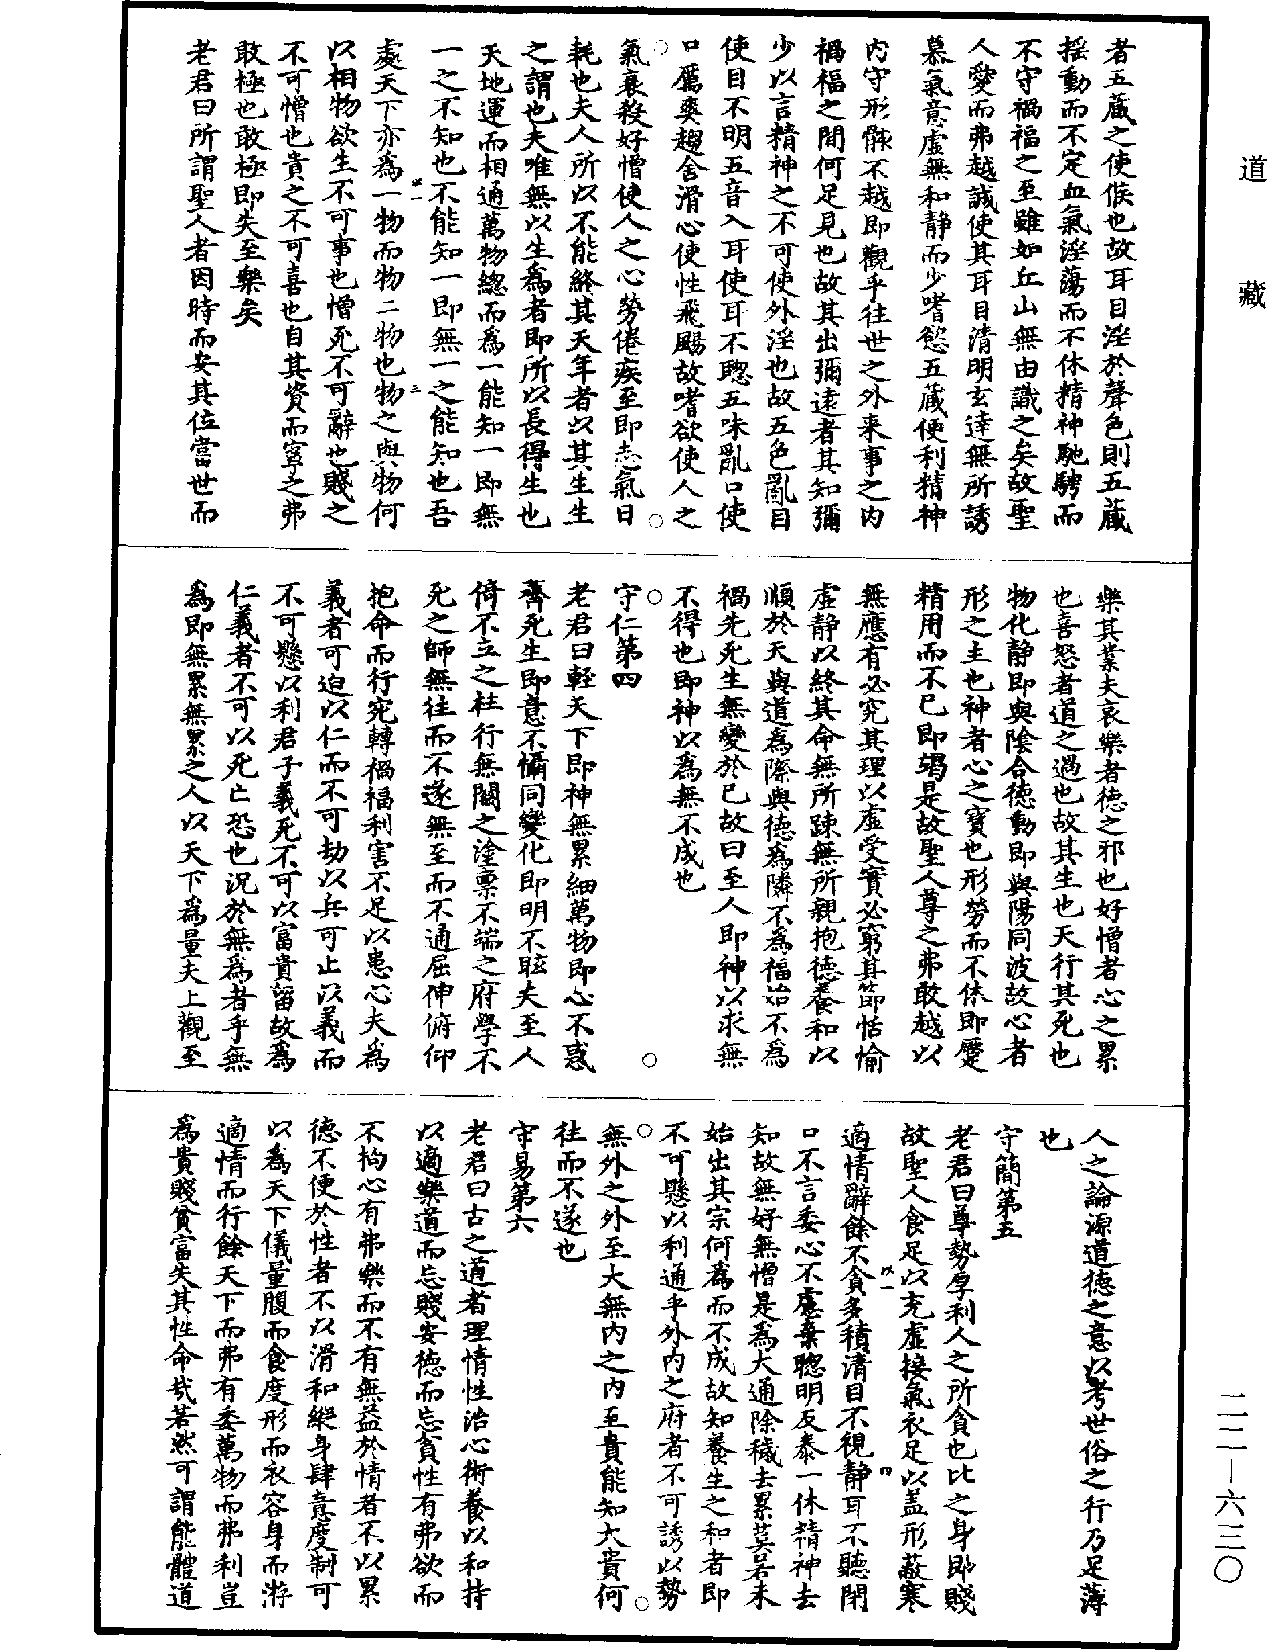 道藏
者五藏之使候也故耳目淫於聲色則五藏
搖動而不定血氣淫蕩而不休精神馳騁而
不守禍福之至雖如丘山無由識之矣故聖
人愛而弗越誠使其耳目清明玄達無所誘
慕氣意虛無和静而少嗜慾五藏便利精神
内守形骸不越即觀乎往世之外来事之内
禍福之間何足見也故其出彌遠者其知彌
少以言精神之不可使外淫也故五色亂目
使目不明五音入耳使耳不聦五味亂口使
口厲爽趨舍滑心使性飛颺故嗜欲使人之
氣衰殺好憎使人之心勞倦疾至即志氣日
耗也夫人所以不能終其天年者以其生生
之謂也夫唯無以生為者即所以長得生也
天地運而相通萬物緫而為一能知一即無
一之不知也不能知一即無一之能知也吾
處天下亦為一物而物二物也物之與物何
以相物欲生不可事也憎死不可辭也賤之
不可憎也貴之不可喜也自其資而寧之弗
敢極也敢極即失至樂矣
老君曰所謂聖人者因時而安其位當世而
樂其業夫哀樂者德之邪也好憎者心之累
也喜怒者道之過也故其生也天行其死也
物化静即與陰合德動即與陽同波故心者
形之主也神者心之寳也形勞而不休即蹷
精用而不已即竭是故聖人尊之弗敢越以
無應有必究其理以虛受實必窮其節恬愉
虛静以終其命無所踈無所親抱德養和以
順於天與道為際與德為隣不為福始不為
禍先死生無變於已故曰至人即神以求無
不得也即神以為無不成也
守仁第四
老君曰輕天下即神無累細萬物即心不惑
齊死生即意不懾同變化即明不眩夫至人
倚不立之柱行無關之塗禀不端之府學不
死之師無往而不遂無至而不通屈伸俯仰
抱命而行宛轉禍福利害不足以患心夫為
義者可迫以仁而不可劫以兵可止以義而
不可懸以利君子義死不可以富貴留故為
仁義者不可以死亡恐也況於無為者乎無
為即無累無累之人以天下為量夫上觀至
人之論源道德之意以考世俗之行乃足薄
也
守簡第五
老君曰尊勢厚利人之所貪也比之身即賤
故聖人食足以充虛接氣衣足以盖形蔽寒
適情辭餘不貪多積清目不視静耳不聽閉
口不言委心不慮棄聦明反泰一休精神去
知故無好無憎是為大通除穢去累莫若未
始出其宗何為而不成故知養生之和者即
不可懸以利通乎外内之府者不可誘以勢
無外之外至大無内之内至貴能知大貴何
往而不遂也
守易第六
老君曰古之道者理情性治心術養以和持
以適樂道而忘賤安德而忘貧性有弗欲而
不拘心有弗樂而不有無益於情者不以累
德不便於性者不以滑和縱身肆意度制可
以為天下儀量腹而食度形而衣容身而游
適情而行餘天下而弗有委萬物而弗利豈
為貴賤貧富失其性命㢤若然可謂能體道
二二—六三〇